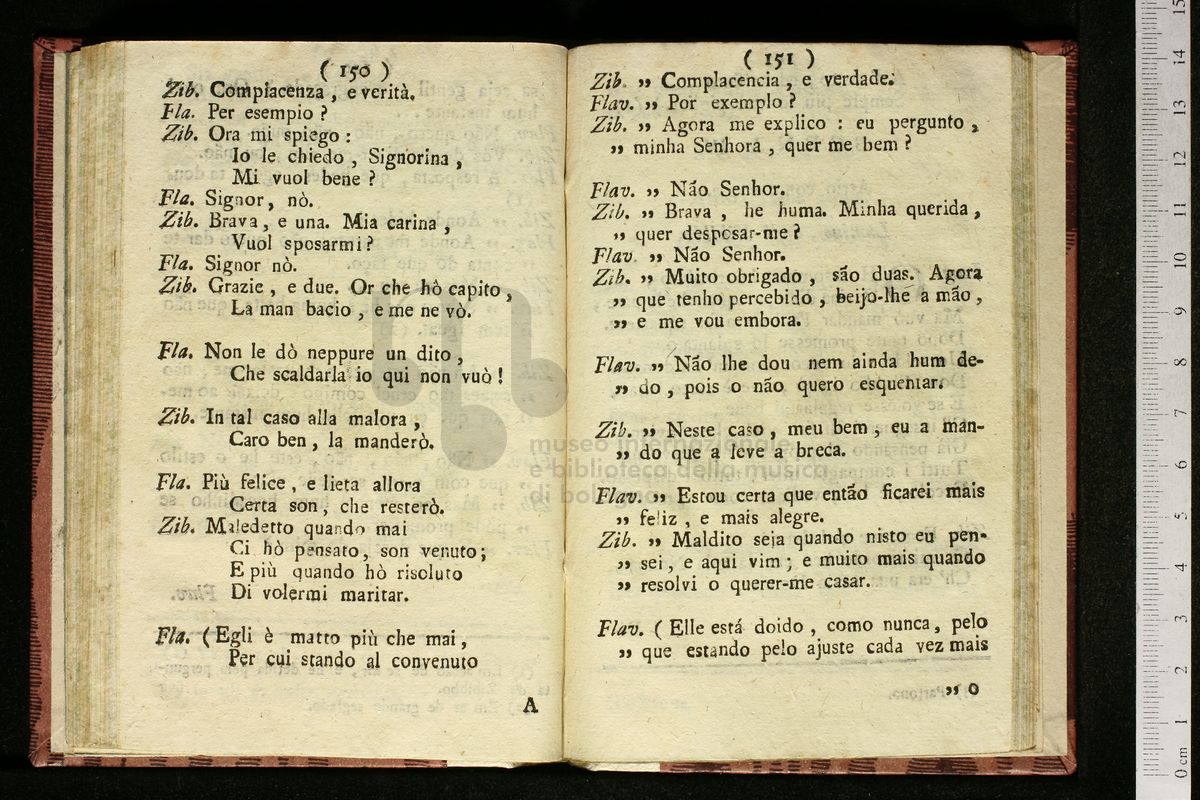 ( 150 )
Zib. Complacenza , e verità.
Fla. Per esempio ?
Zib. Ora mi spiego :
Io le chiedo , Signorina ,
Mi vuol bene ?
Fla. Signor, nò.
Zib. Brava , e una. Mia carina ,
Vuol sposarmi ?
Fla. Signor nò.
Zib. Grazie , e due. Or che hò capito ,
La man bacio , e me ne vò.
Fla. Non le dò neppure un dito ,
Che scaldarla io qui non vuò !
Zib. In tal caso alla malora ,
Caro ben , la manderò.
Fla. Più felice , e lieta allora
Certa son , che resterò.
Zib. Maledetto quando mai
Ci hò pensato, son venuto ;
E più quando hò risoluto
Di volermi maritar.
Fla. ( Egli è matto più che mai ,
Per cui stando al convenuto
A
( 151 )
Zib. ,, Complacencia , e verdade.
Flav. ,, Por exemplo ?
Zib. ,, Agora me explico : eu pergunto ,
,, minha Senhora , quer me bem ?
Flav. ,, Não Senhor.
Zib. ,, Brava , he huma. Minha querida ,
,, quer desposar-me ?
Flav. ,, Não Senhor.
Zib. ,, Muito obrigado , são duas. Agora
,, que tenho percebido , beijo-lhe a mão ,
,, e me vou embora.
Flav. ,, Não lhe dou nem ainda hum de-
,, do , pois o não quero esquentar.
Zib. ,, Neste caso , meu bem , eu a man-
,, do que a leve a breca.
Flav. ,, Estou certa que então ficarei mais
,, feliz , e mais alegre.
Zib. ,, Maldito seja quando nisto eu pen-
,, sei , e aqui vim ; e muito mais quando
,, resolvi o querer-me casar.
Flav. ( Elle está doido , como nunca , pelo
,, que estando pelo ajuste cada vez mais
,, o
museo internazionale
e biblioteca della musica
di bologna
0 cm 1 2 3 4 5 6 7 8 9 10 11 12 13 14 15